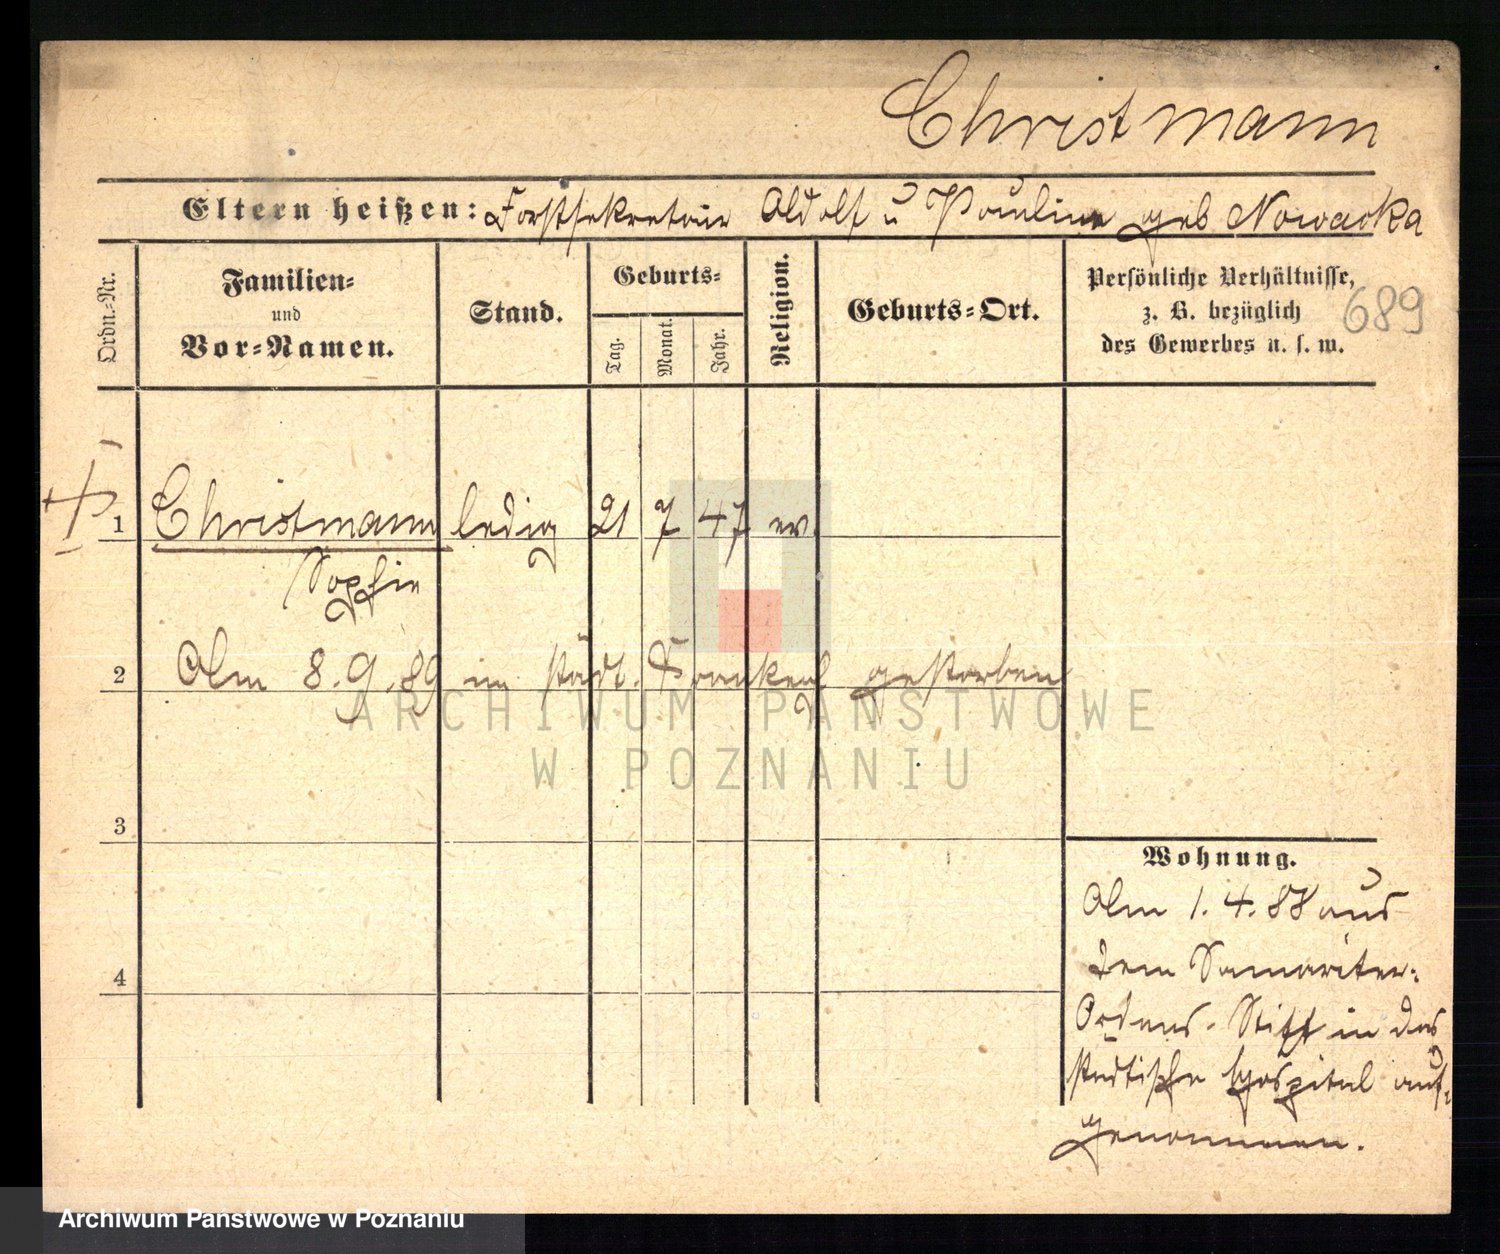 Christmann
Eltern heißen: Forstsekretair Adolf u Pauline geb Nowacka
Ordn.-Nr.
Familien-
und
Vor-Namen.
Stand.
Geburts-
Tag.
Monat.
Jahr.
Religion.
Geburts-Ort.
Persönliche Verhältnisse,
z. B. bezüglich
des Gewerbes u. s. w.
689
1 Christmann ledig 21 7 47 ev.
Sophie
2 Am 8.9.89 im städt. Krankenh gestorben
ARCHIWUM PAŃSTWOWE
W POZNANIU
3
Wohnung.
Am 1.4.88 aus
dem Samariter-
Ordens-Stift in das
4
städtische Hospital auf-
genommen.
Archiwum Państwowe w Poznaniu